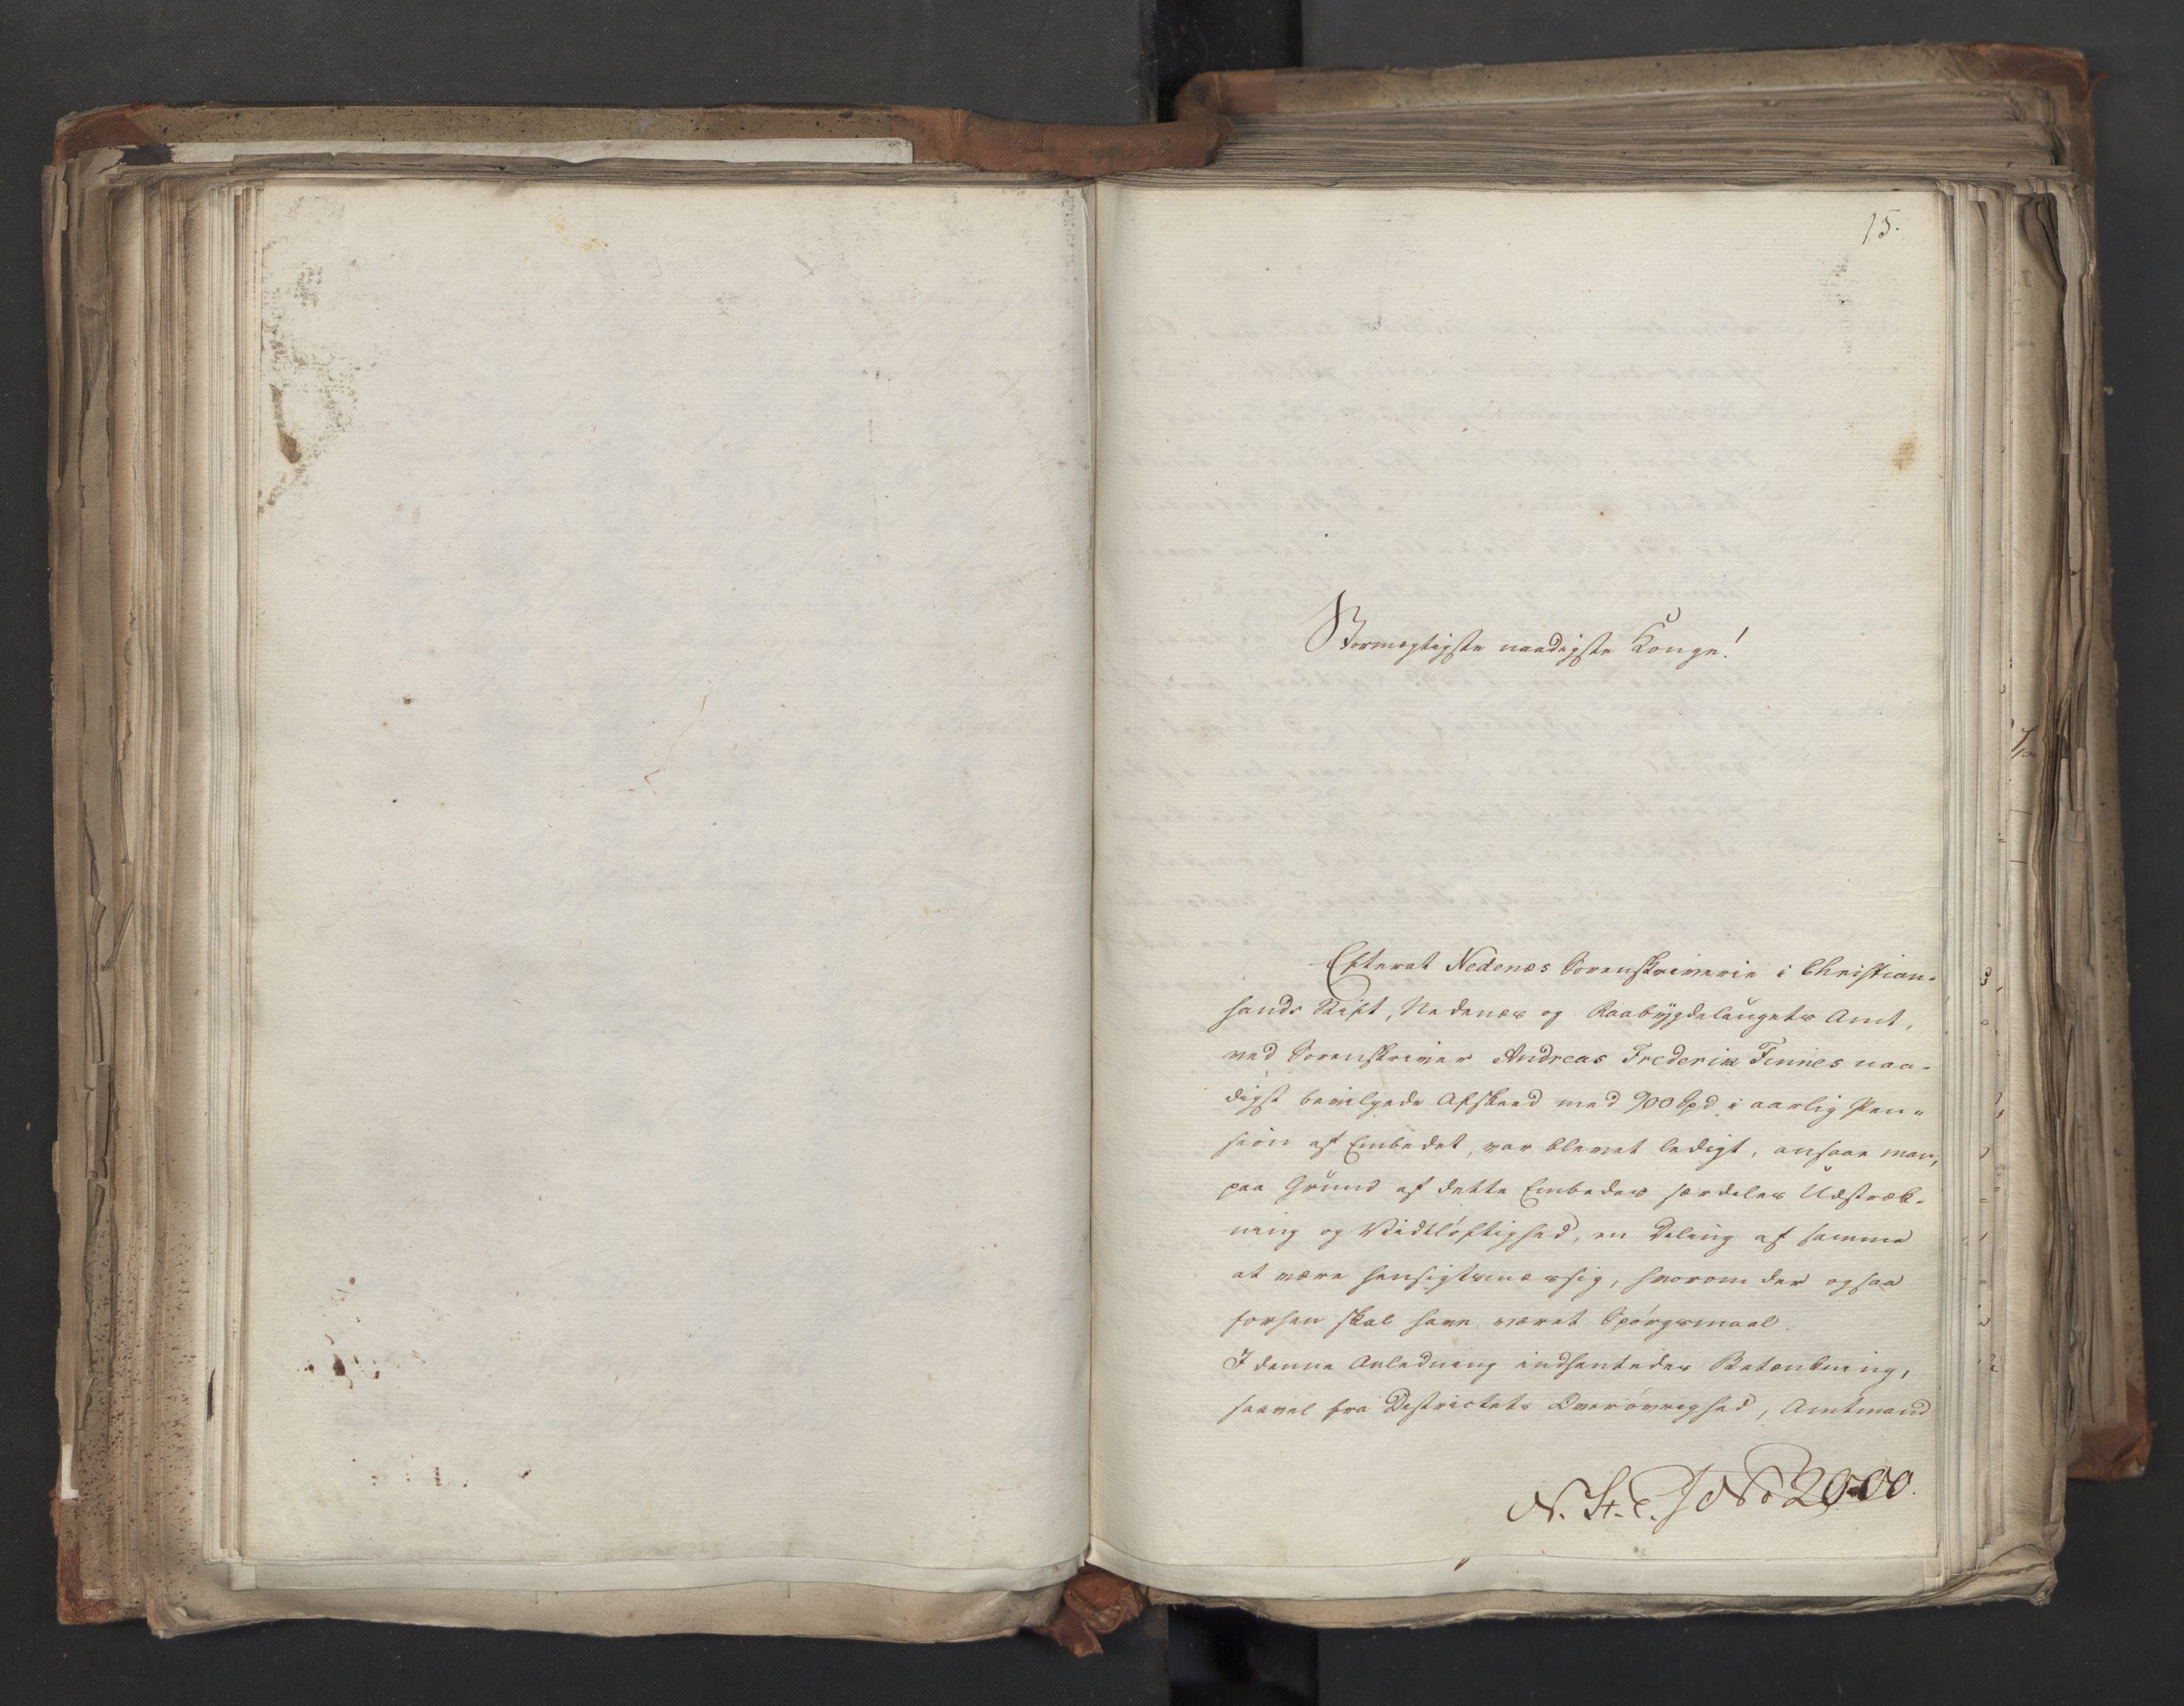 15.
Stormægtigste naadigste Konge!
Efterat Nedenes Sorenskriverie i Christian-
sands Stift, Nedenes og Raabygdelaugets Amt,
ved Sorenskriver Andreas Frederik Finnes naa-
digst bevilgede Afskeed med 900 Spd i aarlig Pen-
sion af Embedet, var blevet ledigt, ansaae man,
paa Grund af dette Embedes særdeles Udstræk-
ning og Vidtløftighed, en Deling af samme
at være hensigtsmæssig, hvorom der ogsaa
forhen skal have været Spørgsmaal.
I denne Anledning indhentedes Betænkning,
saavel fra Districtets Overøvrighed, Amtmand
N. St. C. J No 2900.